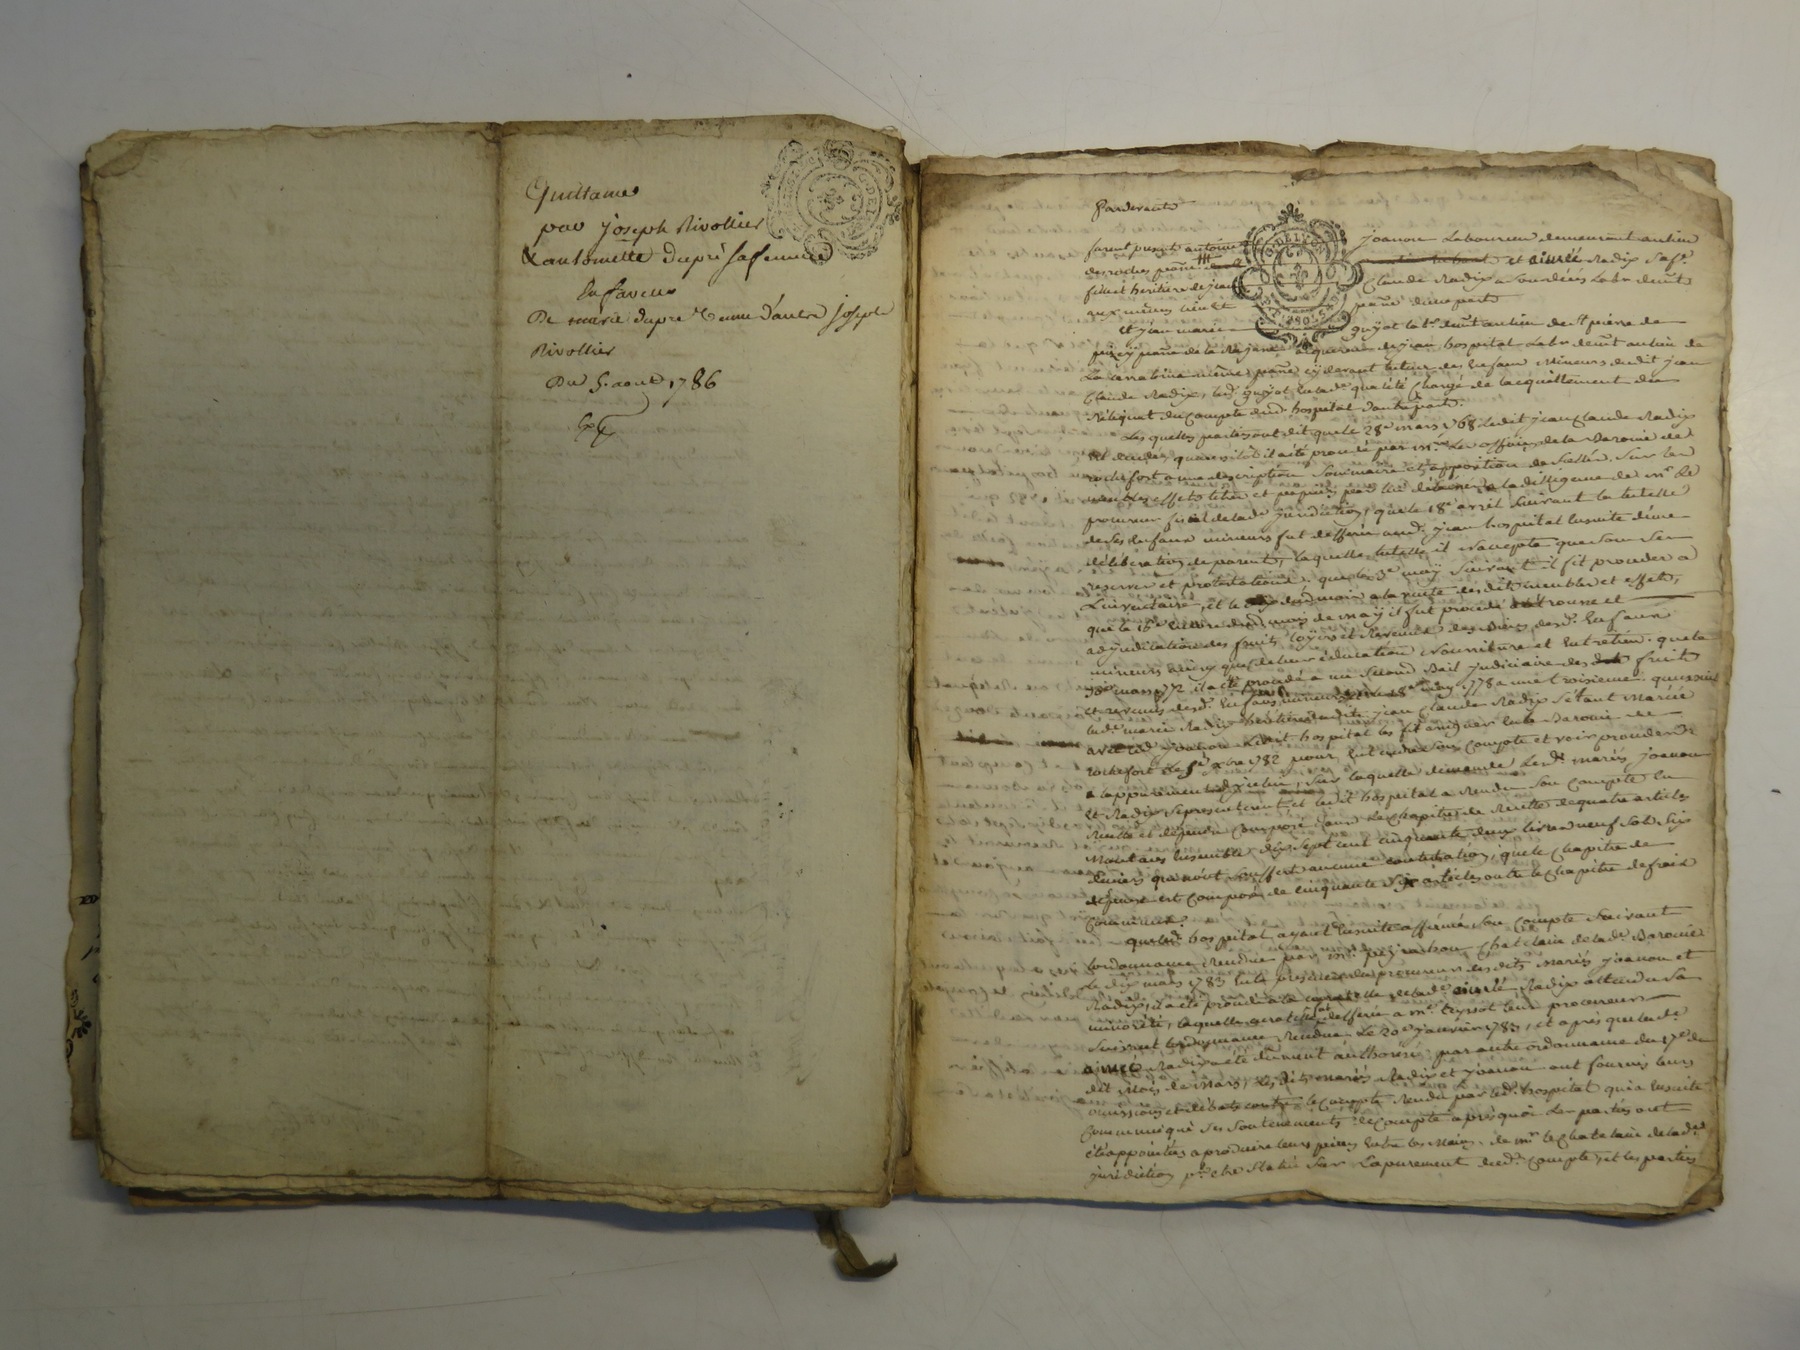 Quittance
par joseph Rivollier
& antoinette dupré sa femme
En faveur
De marie dupré veuve d'autre joseph
Rivollier
Du 5. aout 1786
Pardevant
furent present antoine joanon Laboureur demeurant au lieu
des roches parre et aimée Radix sa fe.
fille et heritiere de jean Claude Radix
aux mêmes lieu et parre d'une part
et jean marie guyot lab.r demt au lieu de st pierre de
jean hospital Lab.r demt au lieu de
même parre cy devant tuteur des Enfans Mineurs dudit jean
Claude Radix, led. guyot en lad. qualité Chargé de l'acquittement du
Reliquat du Compte dud. hospital d'autre part.
Les quelles parties ont dit que le 28e mars 1768 Ledit jean Claude Radix
est decedé, qu'aussitôt il a été procédé par mrs Les officiers de la Baronie de
rochefort a une description sommaire et apposition de scellés sur les
meubles effets titres et papiers par lui delaissés a la dilligence de mr Le
procureur fiscal de lade juridiction, que le 18e avril suivant la tutelle
de ses Enfans mineurs fut defferée aud. jean hospital Ensuite d'une
déliberation de parents, laquelle tutelle il n'accepta que sous ses
reserves et protestations. que le may suivant il fit proceder a
L'inventaire, et le dud. mois a la vente desdits meubles et effets,
que le 16e dud. mois de may il fut procédé a la trousse et
adjudication des fruits loyers et Revenus des Biens desd. Enfans
mineurs ainsy que de leur éducation Nourriture et Entretien. que le
mars 1772 il a été procédé a un second Bail judiciaire des fruits
et revenus desd. Enfans mineurs 28e may 1778 a une troisieme. qu'ensuite
lade marie Radix heritiere dudit jean Claude Radix s'étant Mariée
avec led. joanon Ledit hospital les fit assigner En la Baronie de
rochefort le xbre 1782 pour Entendre son Compte et voir proceder
a l'appurement d'icelui, sur laquelle demande Lesd. mariés joanon
et Radix se presenterent et ledit hospital a Rendu son Compte En
Recette et depense Composé pour Le Chapitre de Recette de quatre articles
Montants Ensemble a dix sept cent cinquante deux livres neuf sols six
deniers qui n'ont souffert aucune contestation, que le Chapitre de
depense est Composé de cinquante six articles outre le Chapitre de frais
communs.
que led. hospital ayant Ensuite affirmé son Compte suivant
l'ordonnance Rendue par mr. peyrachon Chatelain de lade Baronie
Le dix mars 1783 En la presence du procureur desdits Mariés joanon et
Radix, il a été procédé a la curatelle de lade aimée Radix attendu sa
minorité, laquelle curatelle fut defferée a me teyssot leur procureur
suivant l'ordonnance Rendue Le 20e janvier 1783, et après que lade
aimée Radix a été duement authorisé par autre ordonnance du 17e du
dit mois de Mars, les dits mariés Radix et joanon ont fournis leurs
omissions et débats contre le Compte Rendu par led. hospital qui a Ensuite
Communiqué ses soutenements de Compte après quoi Les parties ont
été appointées a produire leurs pieces Entre les Mains de mr le Chatelain de lade
juridiction pr. etre Statué sur L'apurement dud. Compte, et les parties